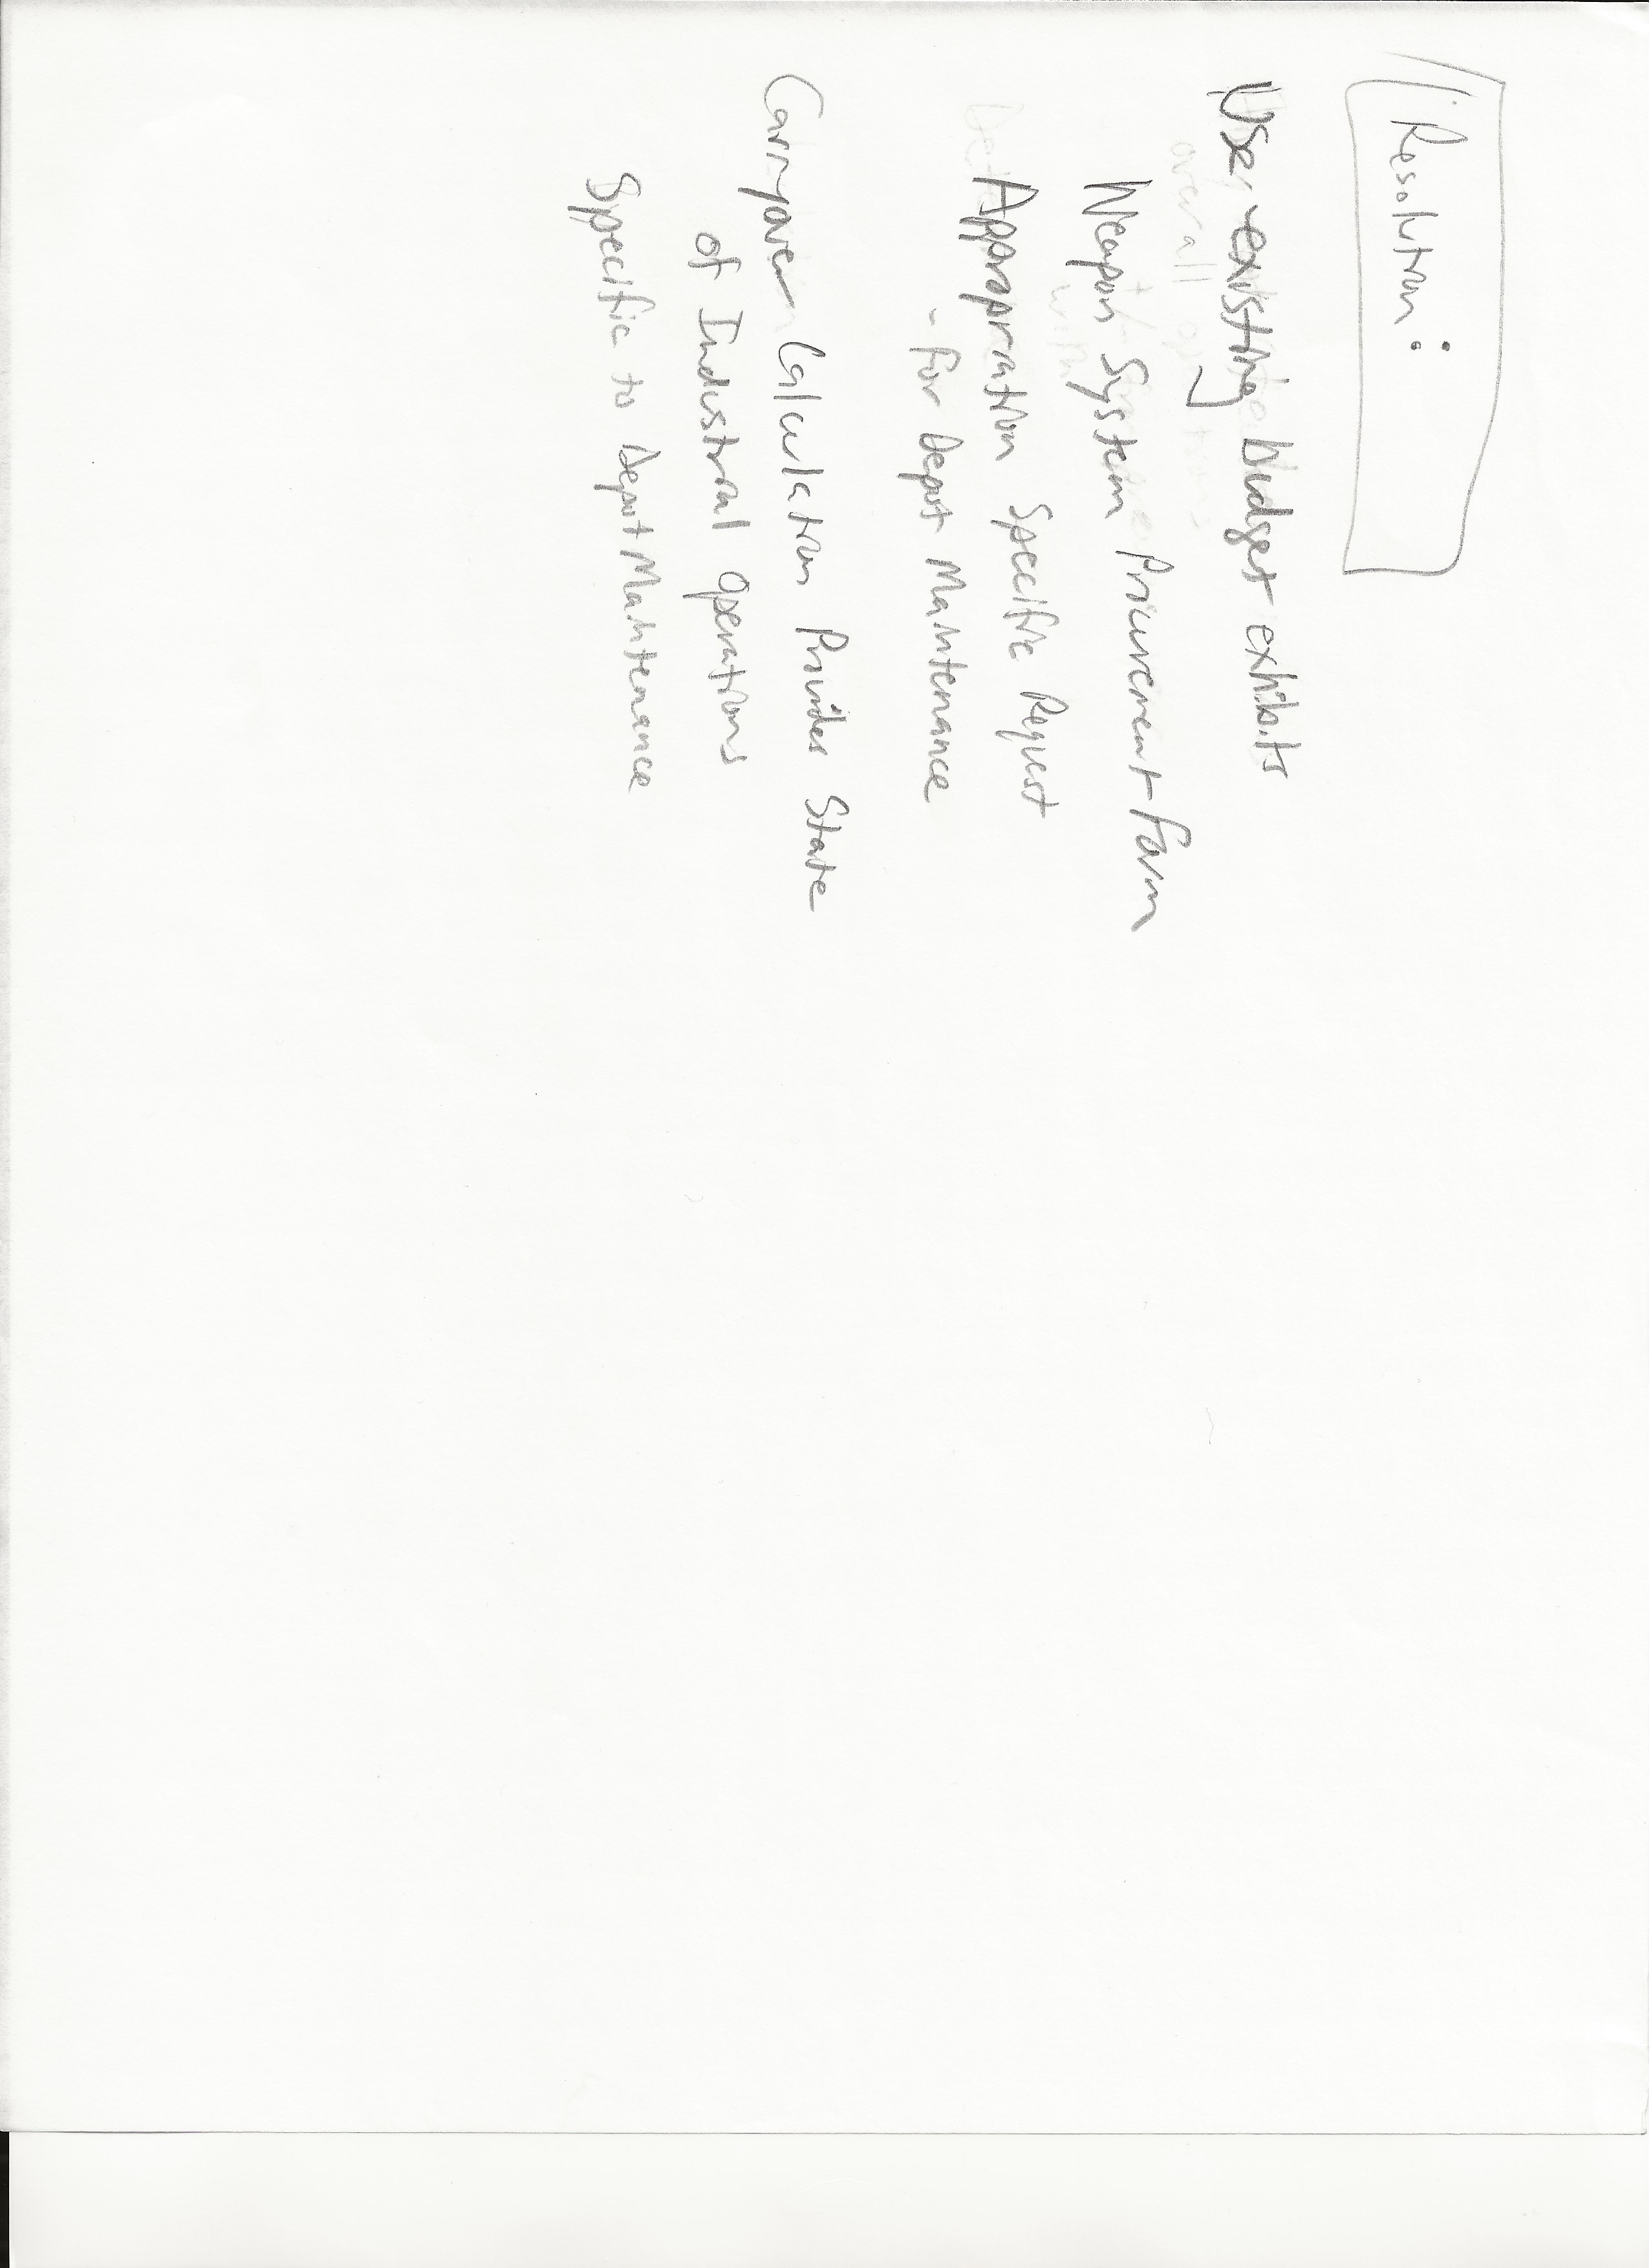 Resolution:
Use existing budget exhibits
overall
Weapon System Procurement Form
with
Appropriation Specific Request
- For Depot Maintenance
Carryover Calculation Provides State
of Industrial Operations
Specific to Depot Maintenance